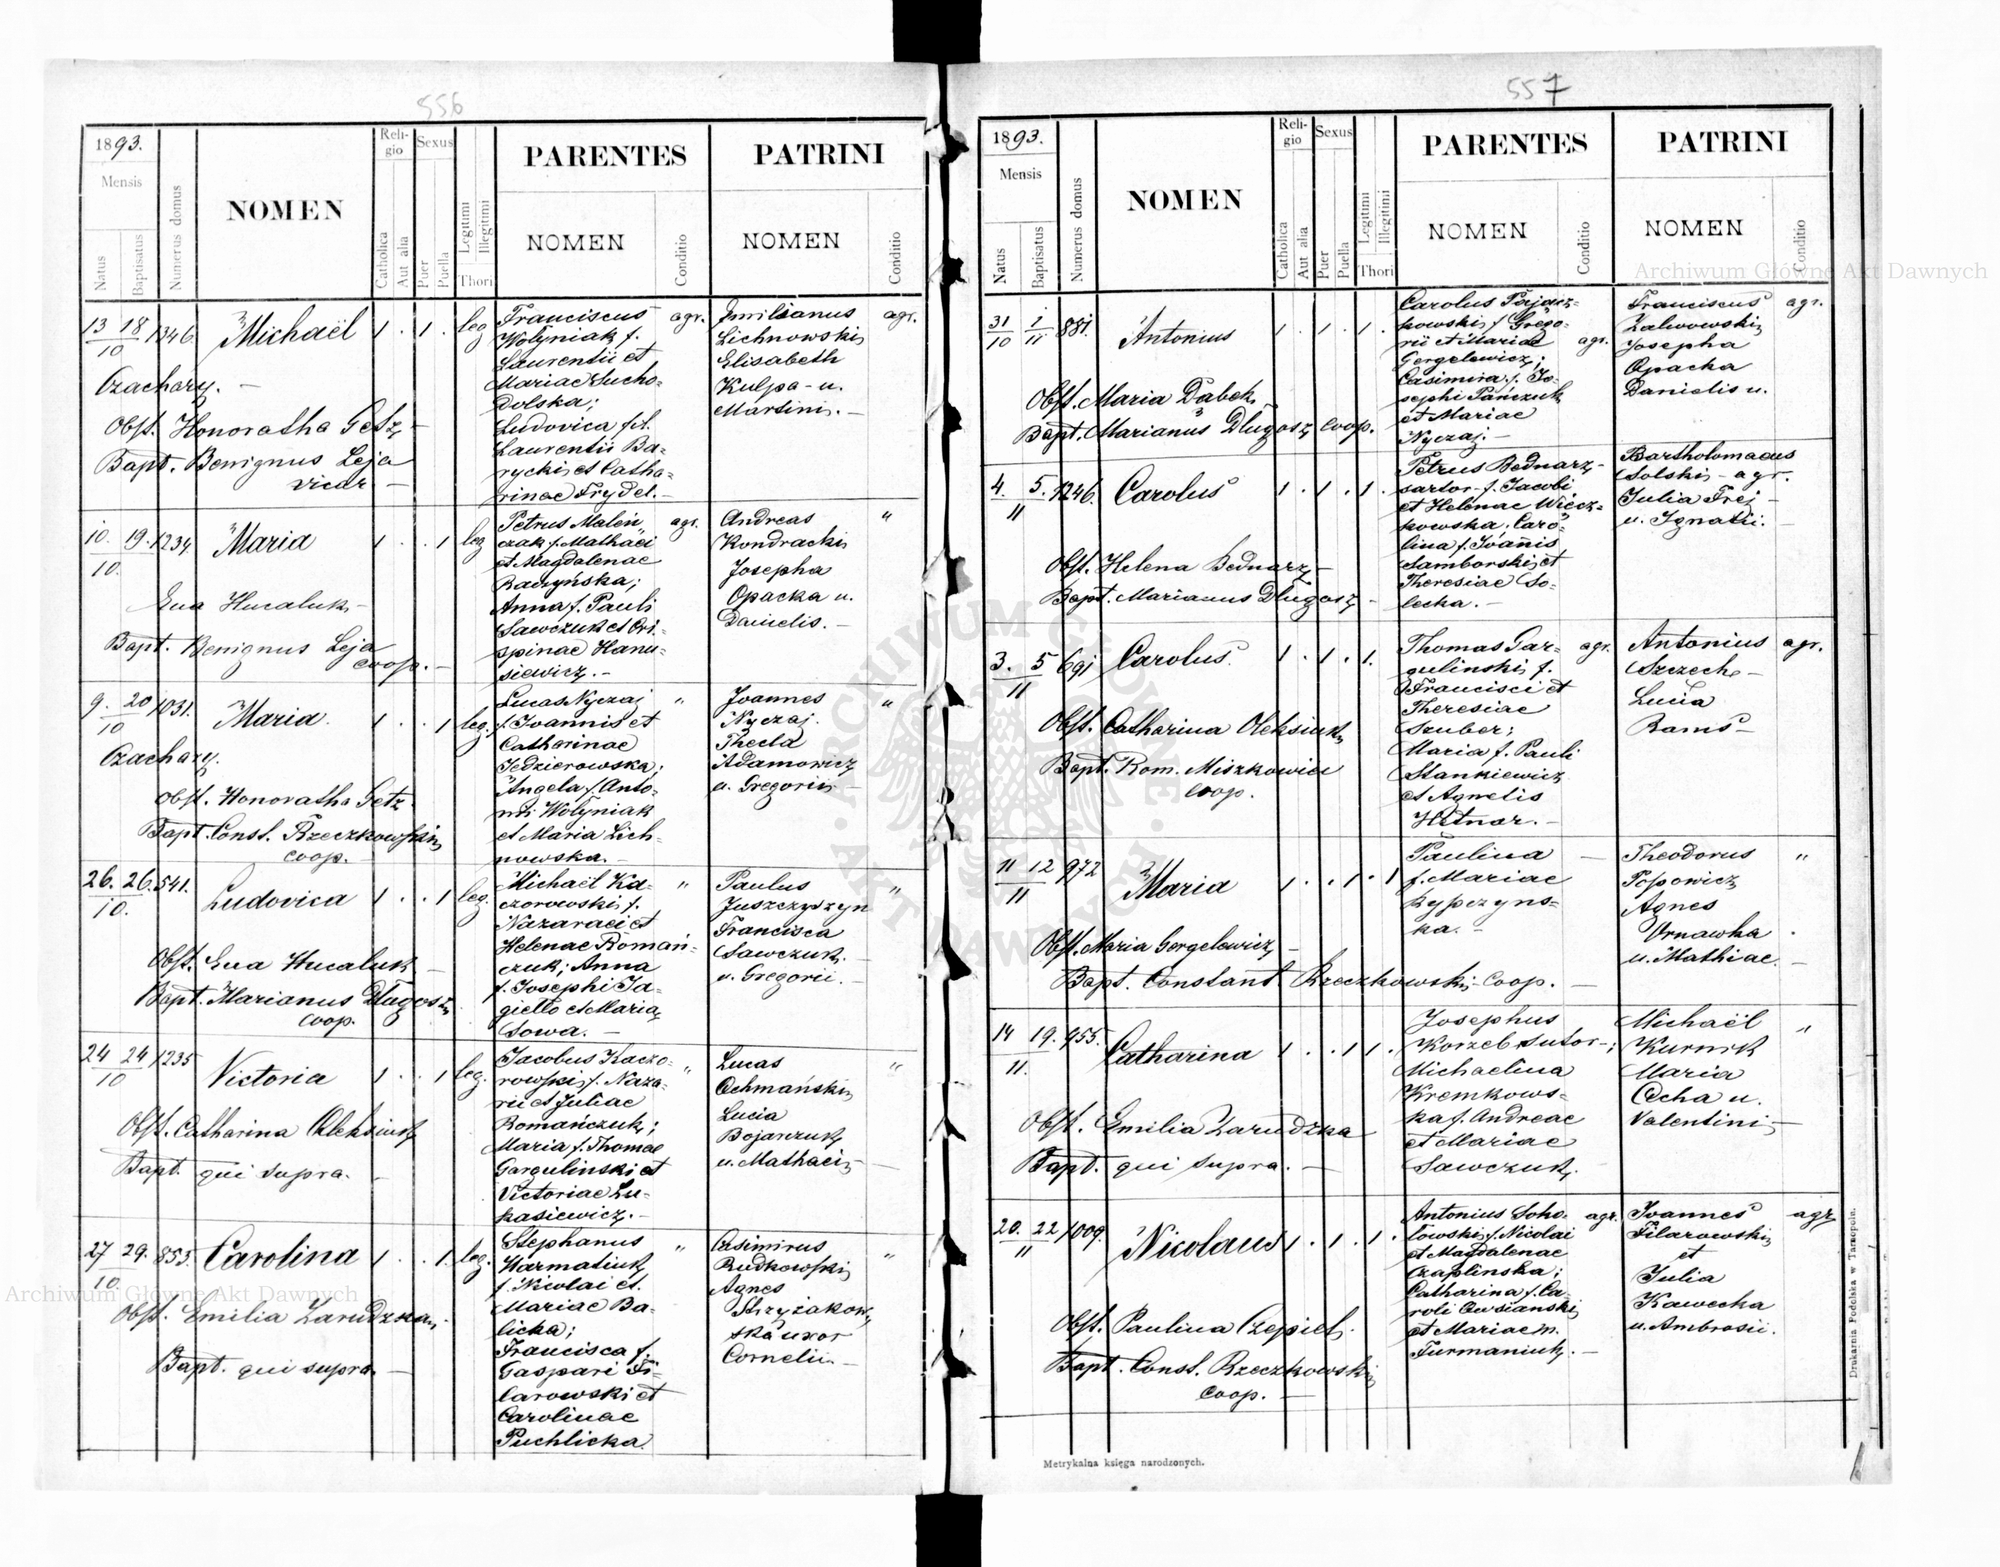 556
1893.
Mensis
Natus
Baptisatus
Numerus domus
NOMEN
Reli-
gio
Catholica
Aut alia
Sexus
Puer
Puella
Legitimi
Illegitimi
Thori
PARENTES
NOMEN
Conditio
PATRINI
NOMEN
Conditio
13 18 1346. Michaël 1 . 1 . leg
10
Czachary. —
Obst. Honoratha Getz —
Bapt. Benignus Leja
vicar —
Franciscus agr.
Wołyniak f.
Laurentii et
Mariae Sucho-
dolska;
Ludovica fil.
Laurentii Ba-
rycki et Catha-
rinae Frydel. —
Emilianus agr.
Lichnowski
Elisabeth
Kulpa - u.
Martini. —
10. 19. 1234. Maria 1 . . 1 leg
10.
Eva Hucaluk —
Bapt. Benignus Leja
coop. —
Petrus Malen agr.
czak f. Mathaei
et Magdalenae
Raczyńska;
Anna f. Pauli
Sawczuk et Cri-
spinae Hanu-
siewicz. —
Andreas "
Kondracki
Josepha
Opacka u.
Danielis. —
9. 20 1031. Maria. 1 . . 1 leg.
10
Czachary.
Obst. Honoratha Getz
Bapt. Const. Rzeczkowski
coop. —
Lucas Nyczaj "
f. Joannis et
Catharinae
Jedzierowska;
Angela f. Anto-
nii Wołyniak
et Maria Lich-
nowska. —
Joannes "
Nyczaj.
Thecla
Adamowicz
u. Gregorii —
26. 26. 541. Ludovica 1 . . 1 leg.
10.
Obst. Eva Hucaluk —
Bapt. Marianus Długosz
coop.
Michaël Ka- "
czorowski f.
Nazaraei et
Helenae Romań-
czuk; Anna
f. Josephi Ja-
giełło et Maria
Sowa. —
Paulus "
Juszczyszyn
Francisca
Sawczuk —
u. Gregorii. —
24 24 1235 Victoria 1 . . 1 leg.
10
Obst. Catharina Oleksiuk
Bapt. qui supra. —
Jacobus Kaczo- "
rowski f. Naza-
rii et Juliae
Romańczuk;
Maria f. Thomae
Gargulinski et
Victoriae Łu-
kasiewicz. —
Lucas "
Ochmański
Lucia
Bojarczuk
u. Mathaei —
27 29. 853. Carolina 1 . . 1. leg.
10.
Obst. Emilia Zarudzka. —
Bapt. qui supra. —
Stephanus "
Harmatiuk
f. Nicolai et
Mariae Ba-
licka;
Francisca f.
Gaspari Fi-
larowski et
Carolinae
Puchlicka.
Casimirus "
Rudkowski
Agnes
Strzyżakow-
ska uxor
Cornelii —
557
1893.
Mensis
Natus
Baptisatus
Numerus domus
NOMEN
Reli-
gio
Catholica
Aut alia
Sexus
Puer
Puella
Legitimi
Illegitimi
Thori
PARENTES
NOMEN
Conditio
PATRINI
NOMEN
Conditio
31 1 881. Antonius 1 . 1 . 1 .
10 11
Obst. Maria Dąbek —
Bapt. Marianus Długosz coop.
Carolus
powski f. Grego-
rii et Mariae agr.
Gergelewicz;
Casimira f. Jo-
sephi Pańczuk
et Mariae
Nyczaj. —
Franciscus agr.
Zalwowski
Josepha
Opacka
Danielis u.
4. 5. 1246. Carolus 1 . 1 . 1 .
11
Obst. Helena Bednarz —
Bapt. Marianus Długosz —
Petrus Bednarz -
sartor - f. Jacobi
et Helenae Więcz-
kowska. Caro-
lina f. Joannis
Samborski et
Theresiae So-
lecka. —
Bartholomaeus
Solski - agr.
Julia Frej —
u. Ignatii. —
3. 5 691 Carolus. 1 . 1 . 1.
11
Obst. Catharina Oleksiuk
Bapt. Rom. Miszkowicz
coop.
Thomas Gar- agr.
gulinski f.
Francisci et
Theresiae
Szuber;
Maria f. Pauli
Stankiewicz
et Agnetis
Hetnar. —
Antonius agr.
Szzech —
Lucia
Rams —
11 12 972 Maria 1 . . 1 . 1
11
Obst. Maria Gergelewicz —
Bapt. Constant Rzeczkowski - Coop. —
Paulina —
f. Mariae
Łypczyns-
ka. —
Theodorus "
Popowicz
Agnes
Ornawka .
u. Mathiae. —
14 19. 955. Catharina 1 . . 1 1 .
11.
Obst. Emilia Zarudzka
Bapt. qui supra. —
Josephus
Korzeb sutor -;
Michaelina
Kremkows-
ka f. Andreae
et Mariae
Sawczuk.
Michaël "
Kurnik
Maria
Cicha u.
Valentini —
20. 22 1009. Nicolaus 1 . 1 . 1 .
11
Obst. Paulina Czepiel.
Bapt. Const. Rzeczkowski
coop. —
Antonius Soko- agr.
lowski f. Nicolai
et Magdalenae
Czaplinska;
Catharina f. Ca-
roli Owsianski
et Mariae m.
Furmaniuk. —
Joannes agr
Filarowski
et
Julia
Kawecka
u. Ambrosii.
Metrykalna księga narodzonych.
Drukarnia Podolska w Tarnopolu.
Archiwum Główne Akt Dawnych
Archiwum Główne Akt Dawnych
ARCHIWUM GŁÓWNE AKT DAWNYCH